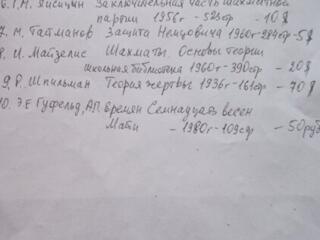 6. Г.М. Лисицын Заключительная часть шахматной
партии 1956г - 525стр - 10$
7. М. Тайманов Защита Немцовича 1960г-284стр-5$
8. И. Майзелис Шахматы. Основы теории
школьная библиотека 1960г-390стр - 20$
9. Р. Шпильман Теория жертвы 1936г-161стр - 70$
10. Э.Е Гуфельд, А.П. Еремян Семнадцать весен
Майи - 1980г-109стр - 50руб